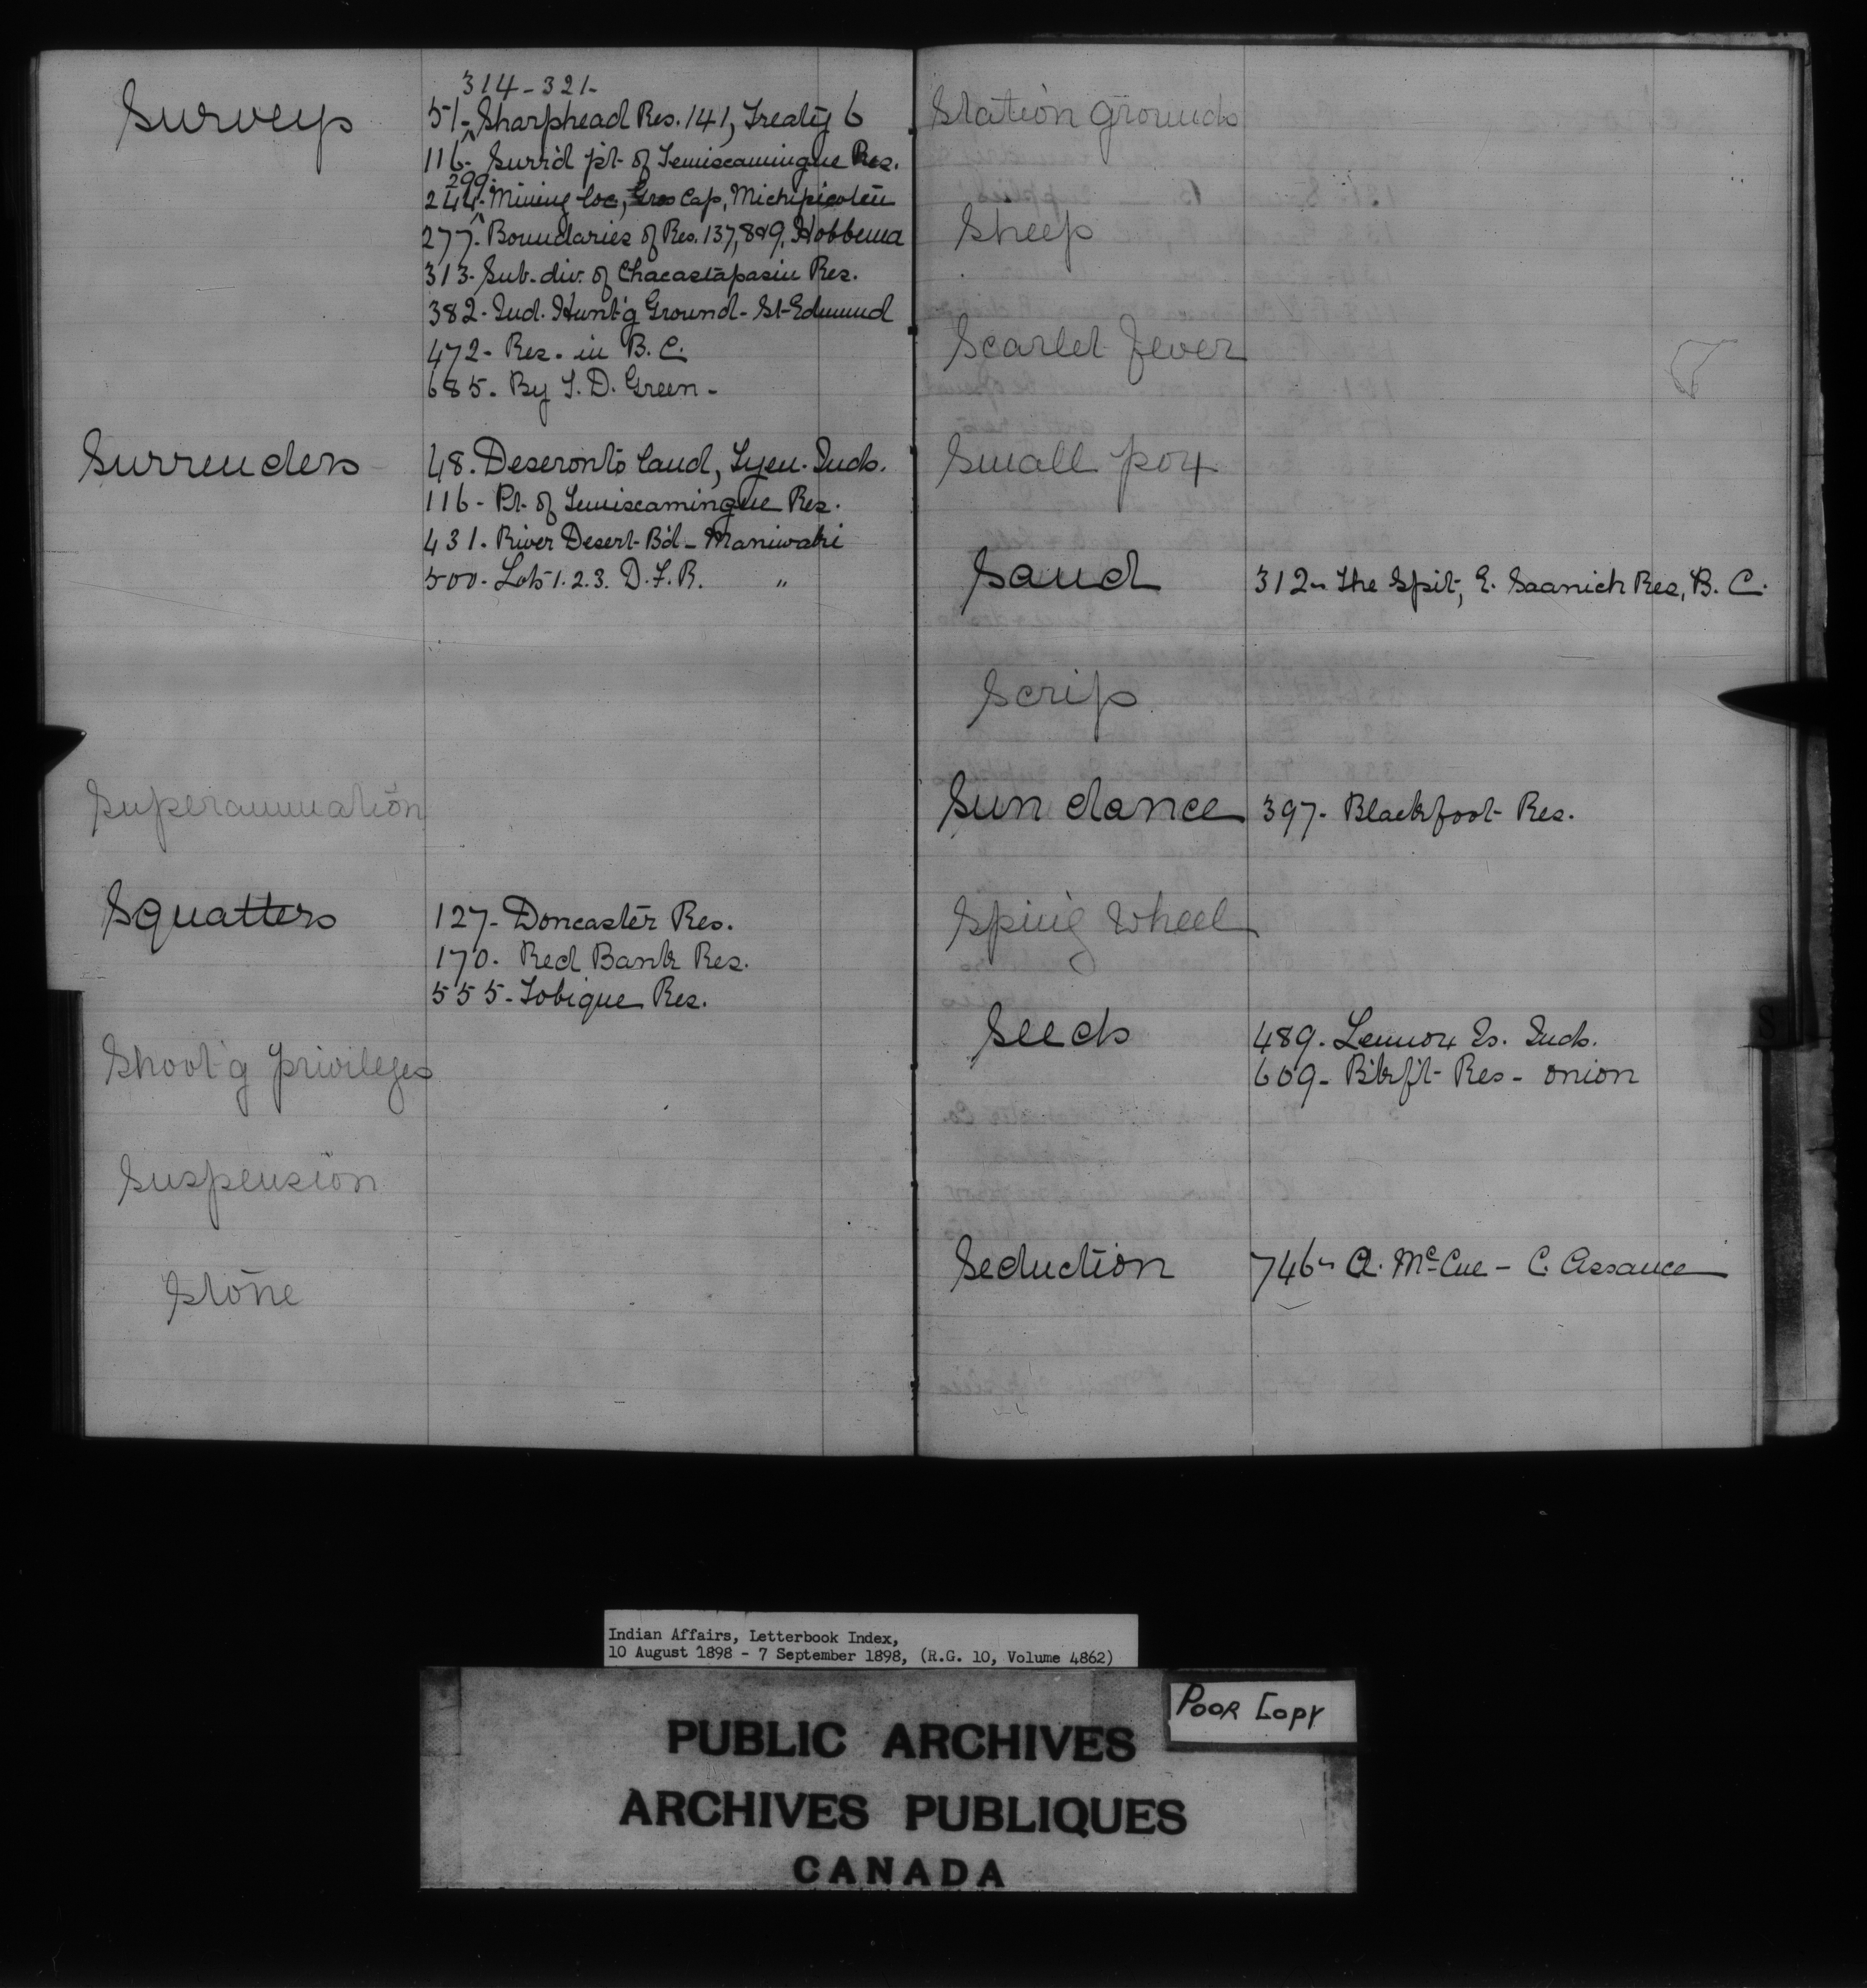 Surveys
314-321-
51-^Sharphead Res. 141, Treaty 6
116- Surr'd pt. of Temiscamingue Res.
299-
244-^Mining loc, Gros Cap, Michipicoten
277- Boundaries of Res. 137, 8 & 9, Hobbema
313- Sub-div. of Chacastapasin Res.
382- Ind. Hunt'g Ground- St-Edmund
472- Res. in B.C.
685- By T.D. Green-
Surrenders
48. Deseronto land, Tyen. Inds.
116- Pt. of Temiscamingue Res.
431- River Desert Bd- Maniwaki
500- Lots 1. 2. 3. D.F.R. "
Superannuation
Squatters
127- Doncaster Res.
170- Red Bank Res.
555- Tobique Res.
Shoot'g privileges
Suspension
Stone
Station Grounds
Sheep
Scarlet Fever
Small pox
Sand
312- The Spit, E. Saanich Res, B.C.
Scrip
Sun dance
397- Blackfoot Res.
Sping Wheel
Seeds
489- Lennox Is. Inds.
609- B'kf't- Res- onion
Seduction
746- A. McCue - C. Assance
S
Indian Affairs, Letterbook Index,
10 August 1898 - 7 September 1898, (R.G. 10, Volume 4862)
POOR COPY
PUBLIC ARCHIVES
ARCHIVES PUBLIQUES
CANADA